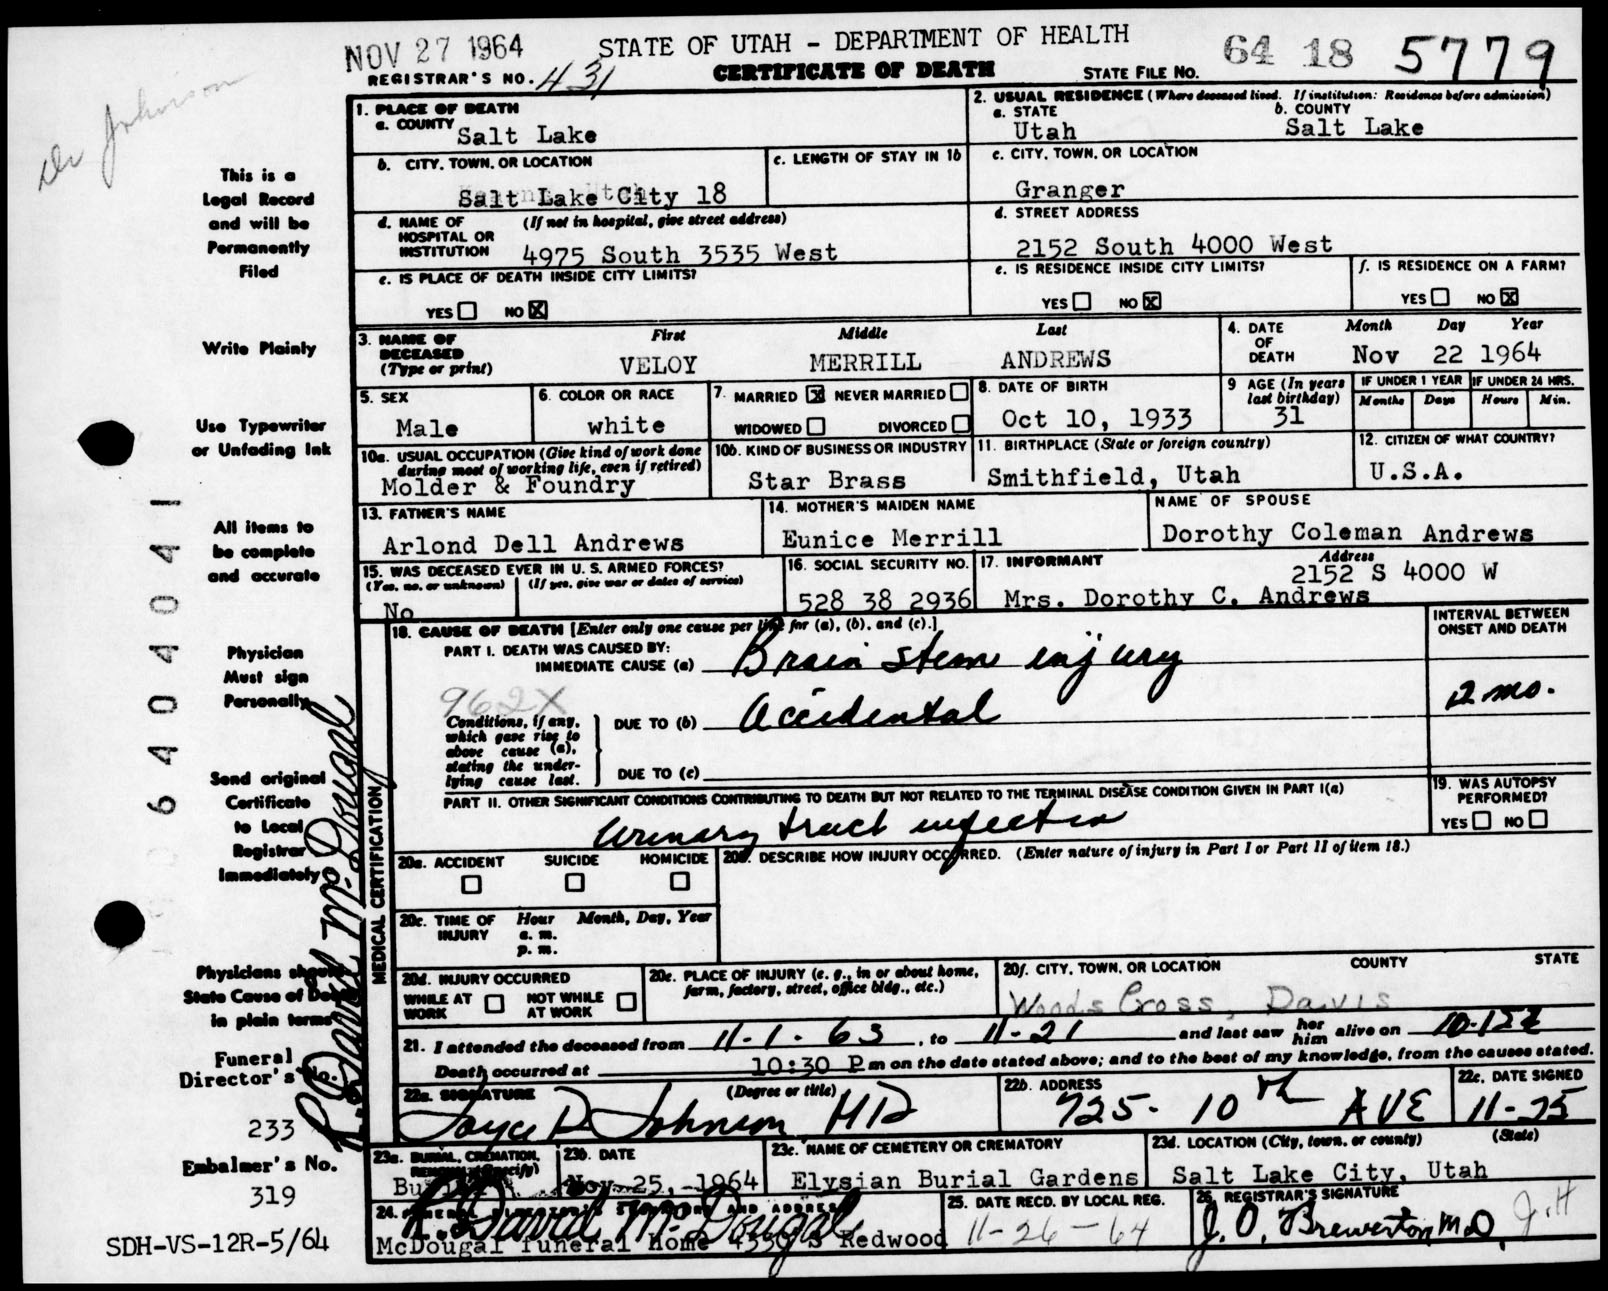 NOV 27 1964
STATE OF UTAH - DEPARTMENT OF HEALTH
64 18 5779
REGISTRAR'S NO. 431
CERTIFICATE OF DEATH
STATE FILE NO.
Dr Johnson
This is a
Legal Record
and will be
Permanently
Filed
Write Plainly
Use Typewriter
or Unfading Ink
All items to
be complete
and accurate
Physician
Must sign
Personally
Send original
Certificate
to Local
Registrar
Immediately
Physicians should
State Cause of Death
in plain terms
Funeral
Director's No.
233
Embalmer's No.
319
SDH-VS-12R-5/64
6404041
R. David McDougal
1. PLACE OF DEATH
a. COUNTY Salt Lake
2. USUAL RESIDENCE (Where deceased lived. If institution: Residence before admission)
a. STATE Utah
b. COUNTY Salt Lake
b. CITY, TOWN, OR LOCATION
Salt Lake City 18
c. LENGTH OF STAY IN 1b
c. CITY, TOWN, OR LOCATION
Granger
d. NAME OF HOSPITAL OR INSTITUTION (If not in hospital, give street address)
4975 South 3535 West
d. STREET ADDRESS
2152 South 4000 West
e. IS PLACE OF DEATH INSIDE CITY LIMITS?
YES ☐ NO ☒
e. IS RESIDENCE INSIDE CITY LIMITS?
YES ☐ NO ☒
f. IS RESIDENCE ON A FARM?
YES ☐ NO ☒
3. NAME OF DECEASED (Type or print)
First Middle Last
VELOY MERRILL ANDREWS
4. DATE OF DEATH
Month Day Year
Nov 22 1964
5. SEX
Male
6. COLOR OR RACE
white
7. MARRIED ☒ NEVER MARRIED ☐
WIDOWED ☐ DIVORCED ☐
8. DATE OF BIRTH
Oct 10, 1933
9 AGE (In years last birthday)
31
IF UNDER 1 YEAR
Months Days
IF UNDER 24 HRS.
Hours Min.
10a. USUAL OCCUPATION (Give kind of work done during most of working life, even if retired)
Molder & Foundry
10b. KIND OF BUSINESS OR INDUSTRY
Star Brass
11. BIRTHPLACE (State or foreign country)
Smithfield, Utah
12. CITIZEN OF WHAT COUNTRY?
U.S.A.
13. FATHER'S NAME
Arlond Dell Andrews
14. MOTHER'S MAIDEN NAME
Eunice Merrill
NAME OF SPOUSE
Dorothy Coleman Andrews
15. WAS DECEASED EVER IN U. S. ARMED FORCES?
(Yes, no, or unknown) (If yes, give war or dates of service)
No
16. SOCIAL SECURITY NO.
528 38 2936
17. INFORMANT Address
2152 S 4000 W
Mrs. Dorothy C. Andrews
MEDICAL CERTIFICATION
18. CAUSE OF DEATH [Enter only one cause per line for (a), (b), and (c).]
INTERVAL BETWEEN ONSET AND DEATH
PART I. DEATH WAS CAUSED BY:
IMMEDIATE CAUSE (a) Brain stem injury
962X
12 mo.
Conditions, if any, which gave rise to above cause (a), stating the underlying cause last.
DUE TO (b) Accidental
DUE TO (c)
PART II. OTHER SIGNIFICANT CONDITIONS CONTRIBUTING TO DEATH BUT NOT RELATED TO THE TERMINAL DISEASE CONDITION GIVEN IN PART I(a)
Urinary tract infection
19. WAS AUTOPSY PERFORMED?
YES ☐ NO ☐
20a. ACCIDENT SUICIDE HOMICIDE
☐ ☐ ☐
20b. DESCRIBE HOW INJURY OCCURRED. (Enter nature of injury in Part I or Part II of item 18.)
20c. TIME OF INJURY
Hour Month, Day, Year
a. m.
p. m.
20d. INJURY OCCURRED
WHILE AT WORK ☐ NOT WHILE AT WORK ☐
20e. PLACE OF INJURY (e. g., in or about home, farm, factory, street, office bldg., etc.)
20f. CITY, TOWN, OR LOCATION COUNTY STATE
Woods Cross, Davis
21. I attended the deceased from 11-1-63, to 11-21 and last saw her him alive on
Death occurred at 10:30 P m on the date stated above; and to the best of my knowledge, from the causes stated.
22a. SIGNATURE (Degree or title)
Joyce D Johnson MD
22b. ADDRESS
725- 10th AVE
22c. DATE SIGNED
11-25
23a. BURIAL, CREMATION, REMOVAL (Specify)
Burial
23b. DATE
Nov 25, 1964
23c. NAME OF CEMETERY OR CREMATORY
Elysian Burial Gardens
23d. LOCATION (City, town, or county) (State)
Salt Lake City, Utah
24. FUNERAL DIRECTOR'S SIGNATURE AND ADDRESS
R. David McDougal
McDougal Funeral Home 4330 S Redwood
25. DATE RECD. BY LOCAL REG.
11-26-64
26. REGISTRAR'S SIGNATURE
J. O. Brewerton M.D.
J.H